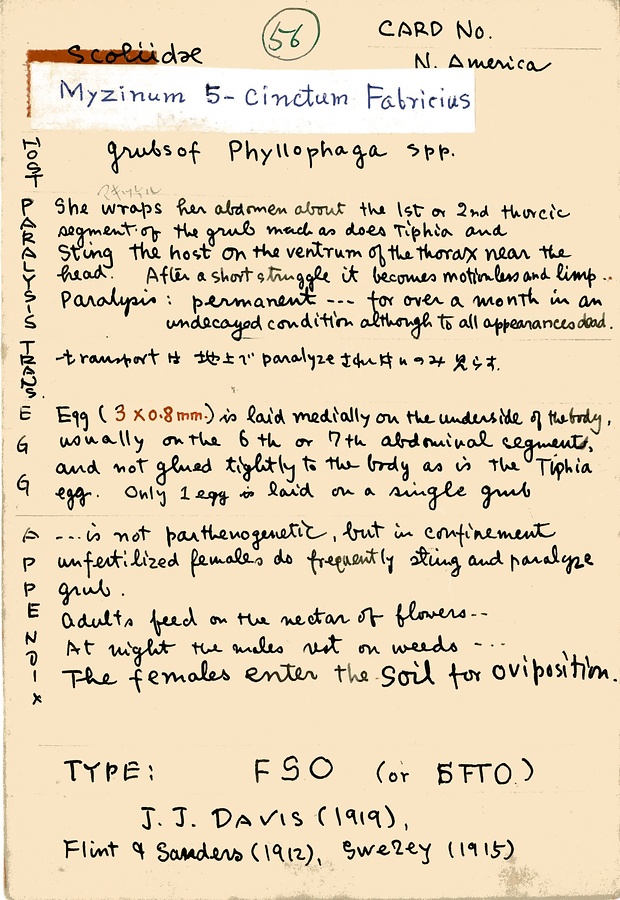 56
CARD No.
Scoliidae
N. America
Myzinum 5-cinctum Fabricius
HOST
grubs of Phyllophaga spp.
PARALYSIS
She wraps her abdomen about the 1st or 2nd thorcic
segment of the grub much as does Tiphia and
Sting the host on the ventrum of the thorax near the
head. After a short struggle it becomes motionless and limp..
Paralysis: permanent --- for over a month in an
undecayed condition although to all appearances dead.
TRANS.
transport は 地上で paralyze
EGG
Egg (3 x 0.8 mm.) is laid medially on the underside of the body,
usually on the 6th or 7th abdominal segments,
and not glued tightly to the body as is the Tiphia
egg. Only 1 egg is laid on a single grub
APPENDIX
---is not parthenogenetic, but in confinement
unfertilized females do frequently sting and paralyze
grub.
Adults feed on the nectar of flowers--
At night the males rest on weeds ---
The females enter the soil for oviposition.
TYPE: FSO (or SFTO.)
J. J. DAVIS (1919),
Flint & Sanders (1912), Swezey (1915)